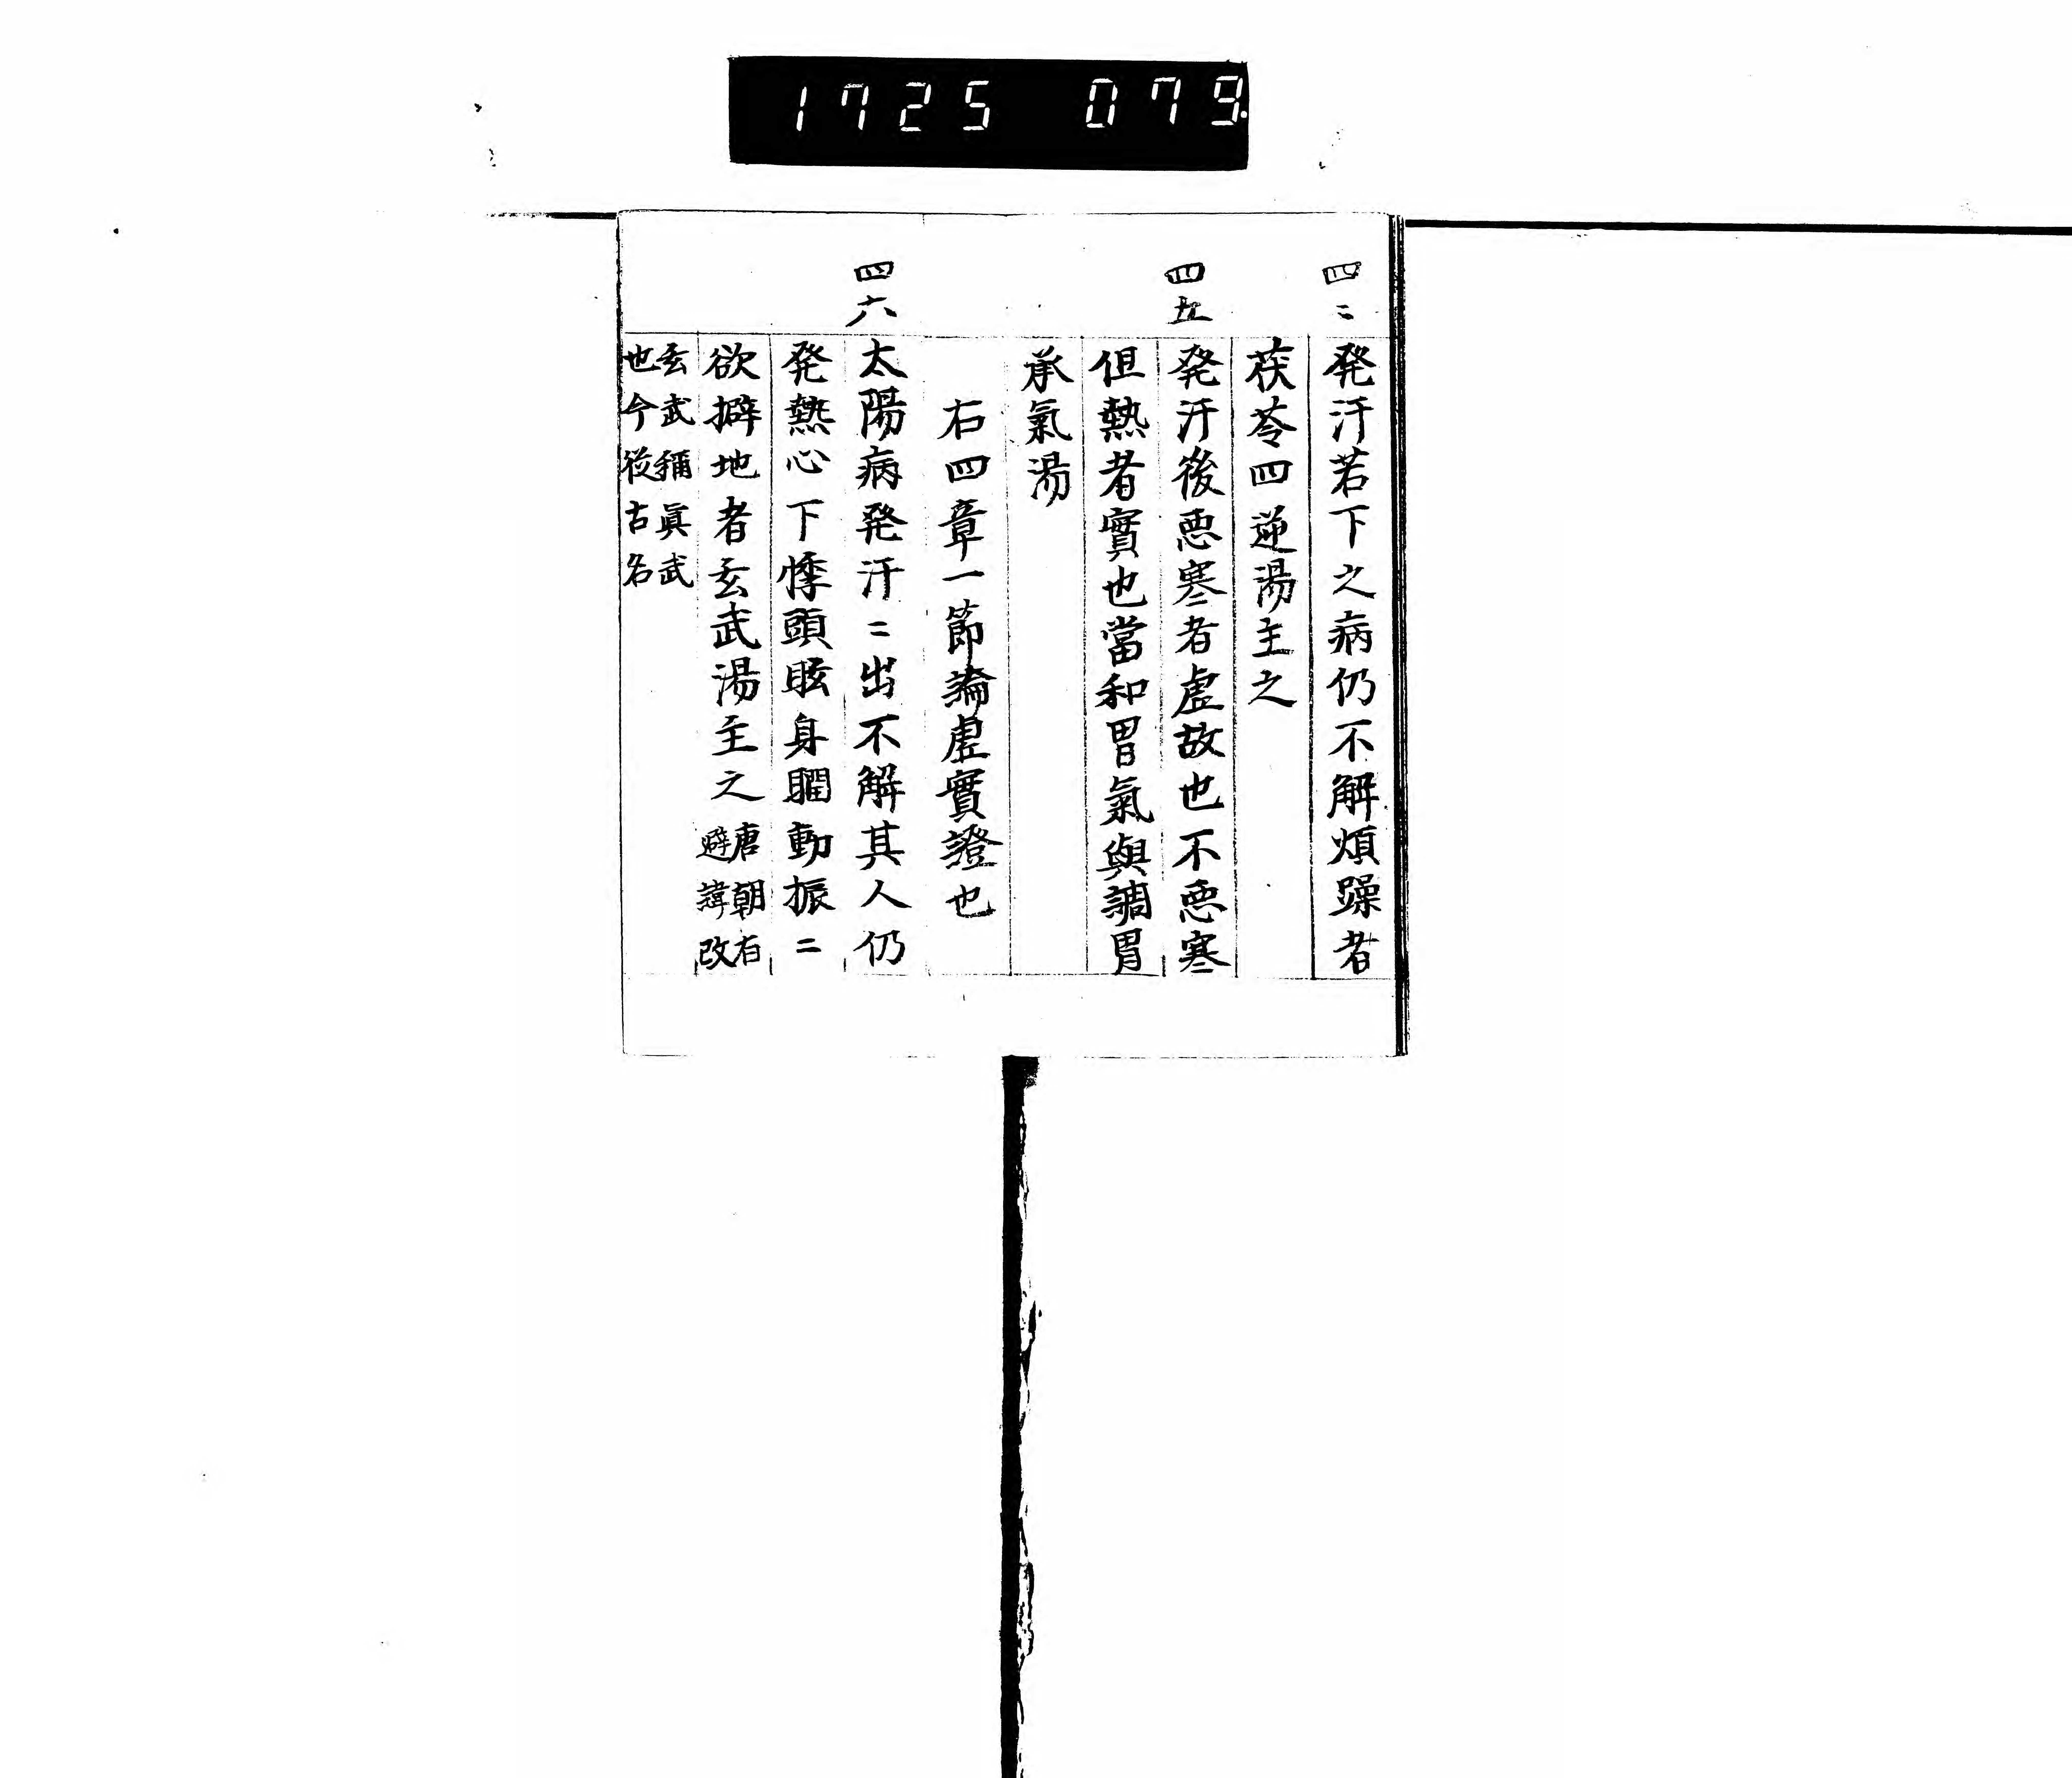 1725 079
四〻
発汗若下之病仍不解煩躁者
茯苓四逆湯主之
四五
発汗後悪寒者虛故也不悪寒
但熱者實也當和胃氣與調胃
承氣湯
右四章一節論虛實證也
四六
太陽病発汗〻出不解其人仍
発熱心下悸頭眩身瞤動振〻
欲擗地者玄武湯主之 唐朝有
避諱改
玄武稱眞武
也今從古名